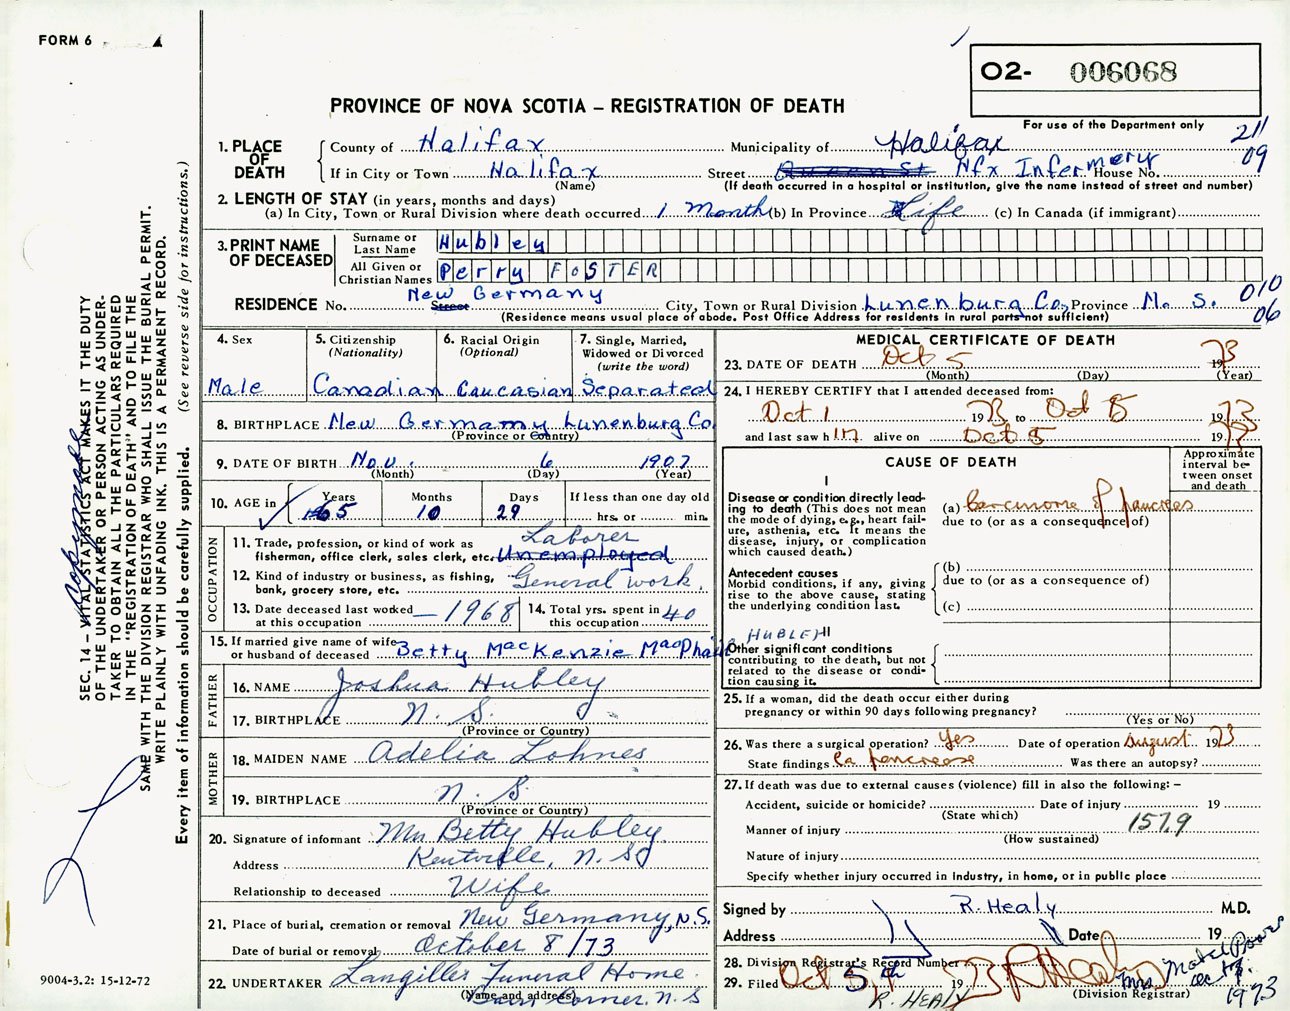 FORM 6
O2- 006068
PROVINCE OF NOVA SCOTIA – REGISTRATION OF DEATH
For use of the Department only
211
09
1. PLACE OF DEATH
County of Halifax Municipality of Halifax
If in City or Town Halifax Street Queen St Hfx Infermery House No.
(Name) (If death occurred in a hospital or institution, give the name instead of street and number)
2. LENGTH OF STAY (in years, months and days)
(a) In City, Town or Rural Division where death occurred 1 Month (b) In Province Life (c) In Canada (if immigrant)
3. PRINT NAME OF DECEASED
Surname or Last Name Hubley
All Given or Christian Names Perry FOSTER
RESIDENCE No. New Germany Street City, Town or Rural Division Lunenburg Co, Province N. S. 010
06
(Residence means usual place of abode. Post Office Address for residents in rural parts not sufficient)
4. Sex
Male
5. Citizenship (Nationality)
Canadian
6. Racial Origin (Optional)
Caucasian
7. Single, Married, Widowed or Divorced (write the word)
Separated
8. BIRTHPLACE New Germany Lunenburg Co
(Province or Country)
9. DATE OF BIRTH Nov. 6 1907
(Month) (Day) (Year)
10. AGE in Years 65 Months 10 Days 29 If less than one day old hrs. or min.
OCCUPATION
11. Trade, profession, or kind of work as fisherman, office clerk, sales clerk, etc. Laborer Unemployed
12. Kind of industry or business, as fishing, bank, grocery store, etc. General work.
13. Date deceased last worked at this occupation – 1968
14. Total yrs. spent in this occupation 40
15. If married give name of wife or husband of deceased Betty MacKenzie MacPhail HUBLEY
FATHER
16. NAME Joshua Hubley
17. BIRTHPLACE N. S.
(Province or Country)
MOTHER
18. MAIDEN NAME Adelia Lohnes
19. BIRTHPLACE N. S.
(Province or Country)
20. Signature of informant Mrs Betty Hubley
Address Kentville, N. S.
Relationship to deceased Wife
21. Place of burial, cremation or removal New Germany, N.S.
Date of burial or removal October 8/73
22. UNDERTAKER Langilles Funeral Home
(Name and address) Barss Corner, N. S
MEDICAL CERTIFICATE OF DEATH
23. DATE OF DEATH Oct 5 1973
(Month) (Day) (Year)
24. I HEREBY CERTIFY that I attended deceased from:
Oct 1 1973 to Oct 5 1973
and last saw him alive on Oct 5 1973
CAUSE OF DEATH
Approximate interval between onset and death
I
Disease or condition directly leading to death (This does not mean the mode of dying, e.g., heart failure, asthenia, etc. It means the disease, injury, or complication which caused death.)
(a) Carcinoma of pancreas
due to (or as a consequence of)
Antecedent causes
Morbid conditions, if any, giving rise to the above cause, stating the underlying condition last.
(b)
due to (or as a consequence of)
(c)
II
Other significant conditions contributing to the death, but not related to the disease or condition causing it.
25. If a woman, did the death occur either during pregnancy or within 90 days following pregnancy?
(Yes or No)
26. Was there a surgical operation? Yes Date of operation August 1973
State findings Ca pancrease Was there an autopsy?
27. If death was due to external causes (violence) fill in also the following: –
Accident, suicide or homicide? Date of injury 19
(State which)
Manner of injury 157.9
(How sustained)
Nature of injury
Specify whether injury occurred in industry, in home, or in public place
Signed by R. Healy M.D.
Address Date 19
28. Division Registrar's Record Number
29. Filed Oct 5, 19
R. HEALY
(Division Registrar)
1973
SEC. 14 – VITAL STATISTICS ACT MAKES IT THE DUTY
OF THE UNDERTAKER OR PERSON ACTING AS UNDERTAKER
TO OBTAIN ALL THE PARTICULARS REQUIRED
IN THE "REGISTRATION OF DEATH" AND TO FILE THE
SAME WITH THE DIVISION REGISTRAR WHO SHALL ISSUE THE BURIAL PERMIT.
WRITE PLAINLY WITH UNFADING INK. THIS IS A PERMANENT RECORD.
Every item of information should be carefully supplied. (See reverse side for instructions.)
9004-3.2: 15-12-72